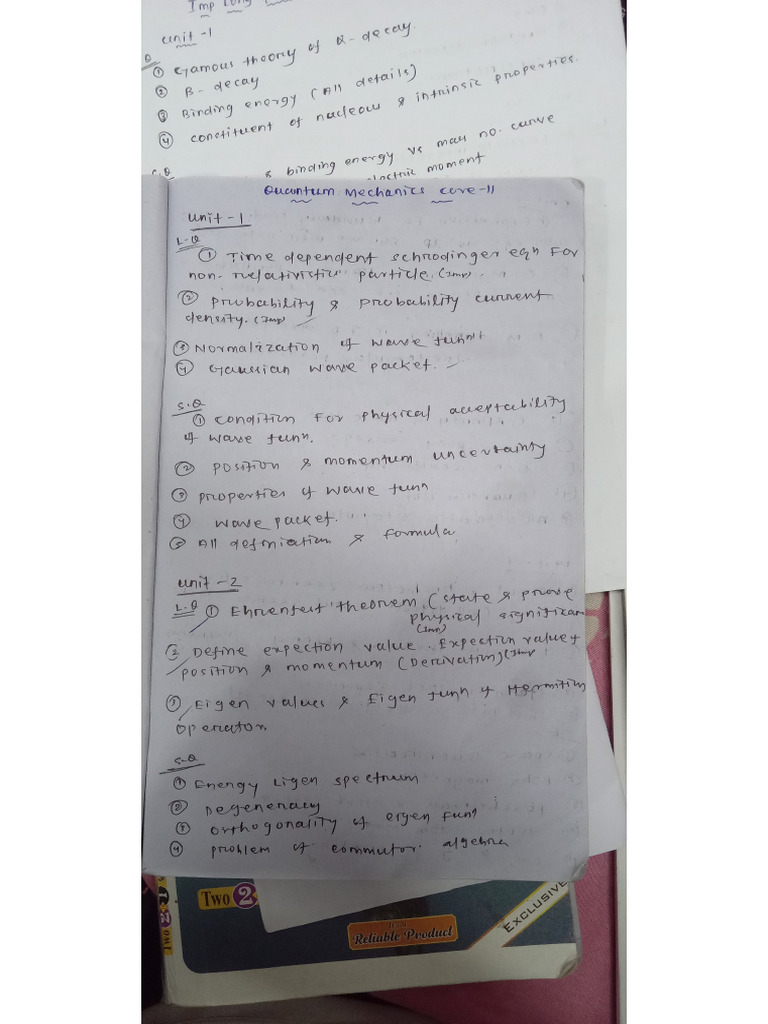 Imp Long
Unit-1
Q
① Gamous theory of α-decay.
② β-decay
③ Binding energy (All details)
④ Constituent of nucleous & intrinsic properties.
S.Q
& binding energy vs mass no. curve
electric moment
Quantum Mechanics Core-11
Unit-1
L-Q
① Time dependent schrodinger eqn For
non-relativistic particle. (Imp).
② Probability & probability current
density. (Imp)
③ Normalization of wave funn
④ Gaussian wave packet.
S.Q
① Condition For physical acceptability
of wave funn.
② Position & momentum uncertainty
③ properties of wave funn
④ wave packet.
⑤ All defniation & formula
Unit-2
L.Q ① Ehrenfest theorem. (state & prove
physical significan
(Imp)
② Define expection value. Expection value of
position & momentum (Derivation) (Imp
③ Eigen values & Eigen funn of Hermition
operator.
S-Q
① Energy Eigen spectrum
② Degeneracy
③ Orthogonality of eigen Funn
④ problem of commutor algebra
Two 2
Two 2
Reliable Product
EXCLUSIVE